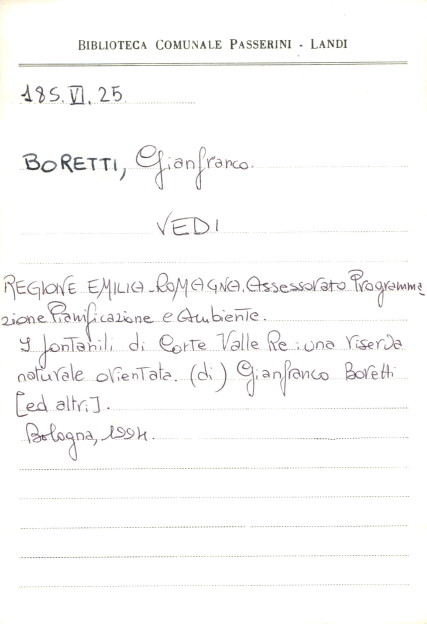 BIBLIOTECA COMUNALE PASSERINI - LANDI
185.VI.25
BORETTI, Gianfranco.
VEDI
REGIONE EMILIA-ROMAGNA. Assessorato Programma
zione Pianificazione e Ambiente.
I fontanili di Corte Valle Re: una riserva
naturale orientata. (di) Gianfranco Boretti
[ed altri].
Bologna, 1994.